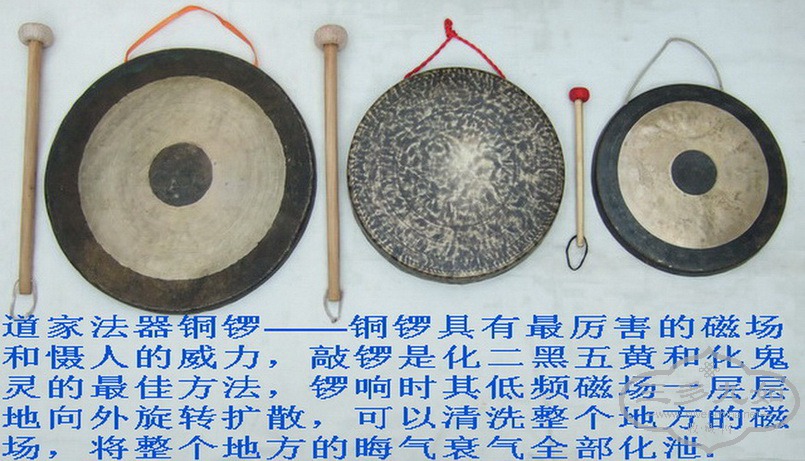 道家法器铜锣——铜锣具有最厉害的磁场
和慑人的威力，敲锣是化二黑五黄和化鬼
灵的最佳方法，锣响时其低频磁场一层层
地向外旋转扩散，可以清洗整个地方的磁
场，将整个地方的晦气衰气全部化泄.